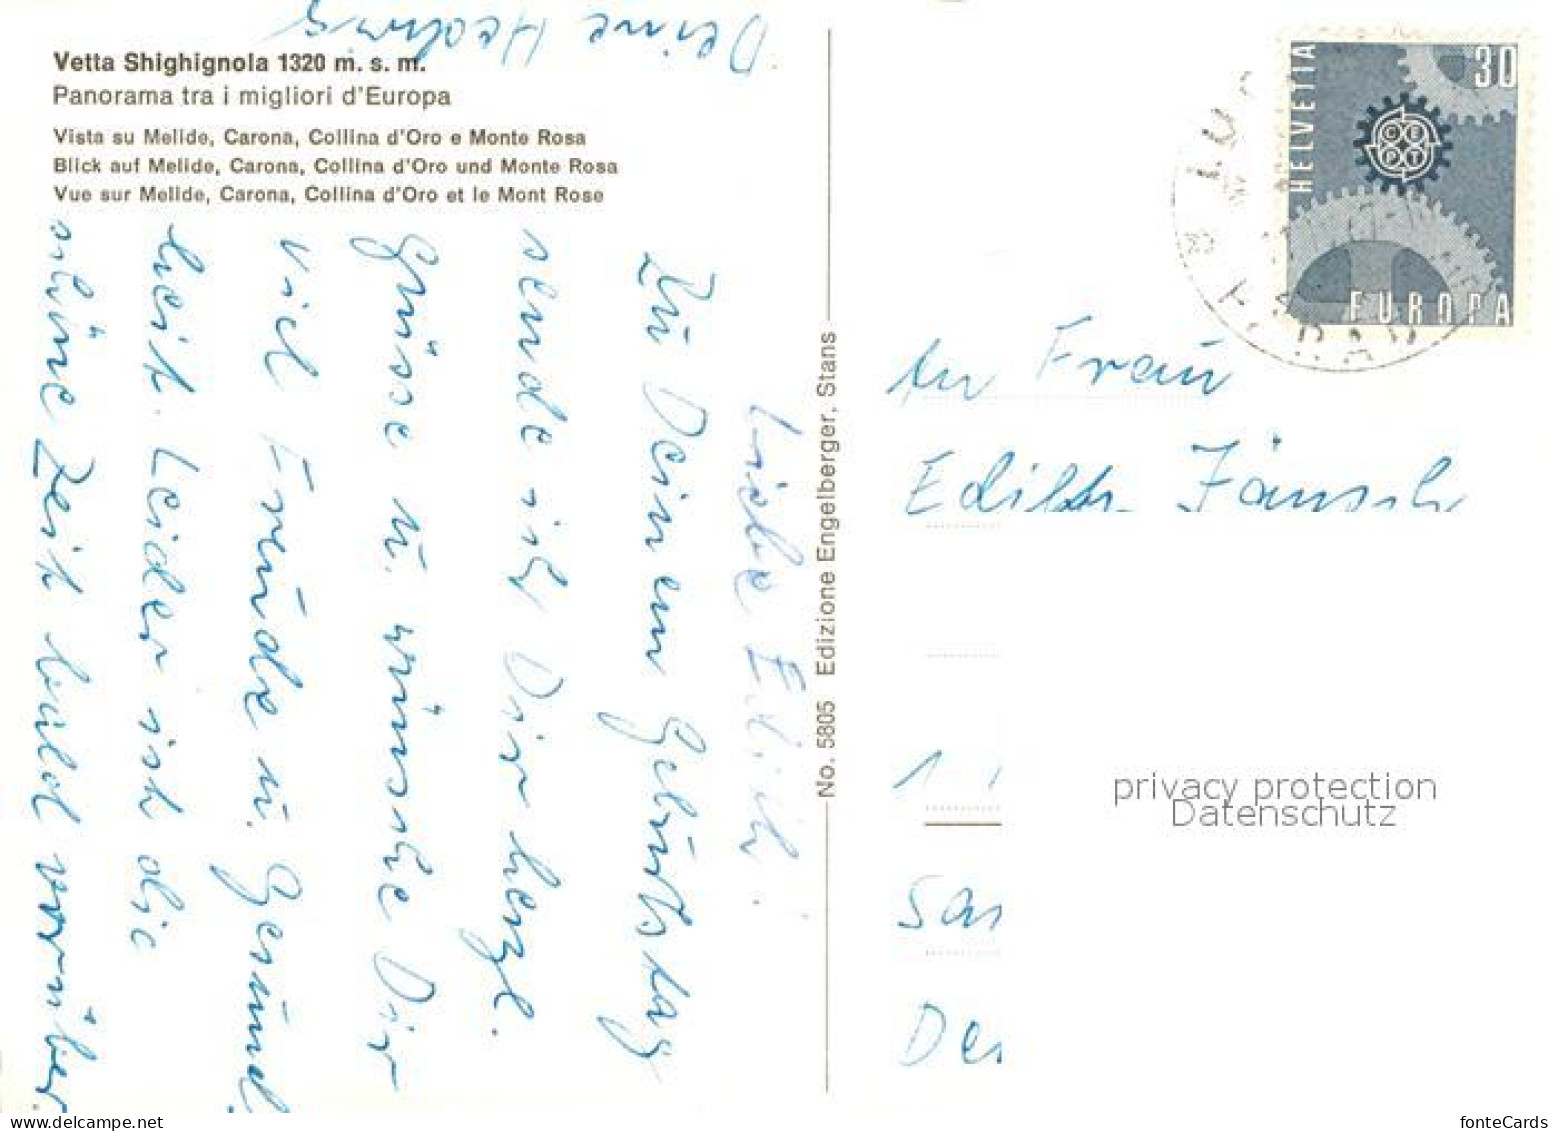 Vetta Shighignola 1320 m. s. m.
Panorama tra i migliori d'Europa
Vista su Melide, Carona, Collina d'Oro e Monte Rosa
Blick auf Melide, Carona, Collina d'Oro und Monte Rosa
Vue sur Melide, Carona, Collina d'Oro et le Mont Rose
Liebe Edith!
Zu Deinem Geburtstag
sende ich Dir herzl.
Grüsse u. wünsche Dir
viel Freude u. Gesund
heit. Leider ist die
schöne Zeit bald vorüber.
Deine Hedwig
No. 5805 Edizione Engelberger, Stans
HELVETIA
30
CEPT
EUROPA
An Frau
Edith Jänsch
1
privacy protection
Datenschutz
delcampe.net
fonteCards